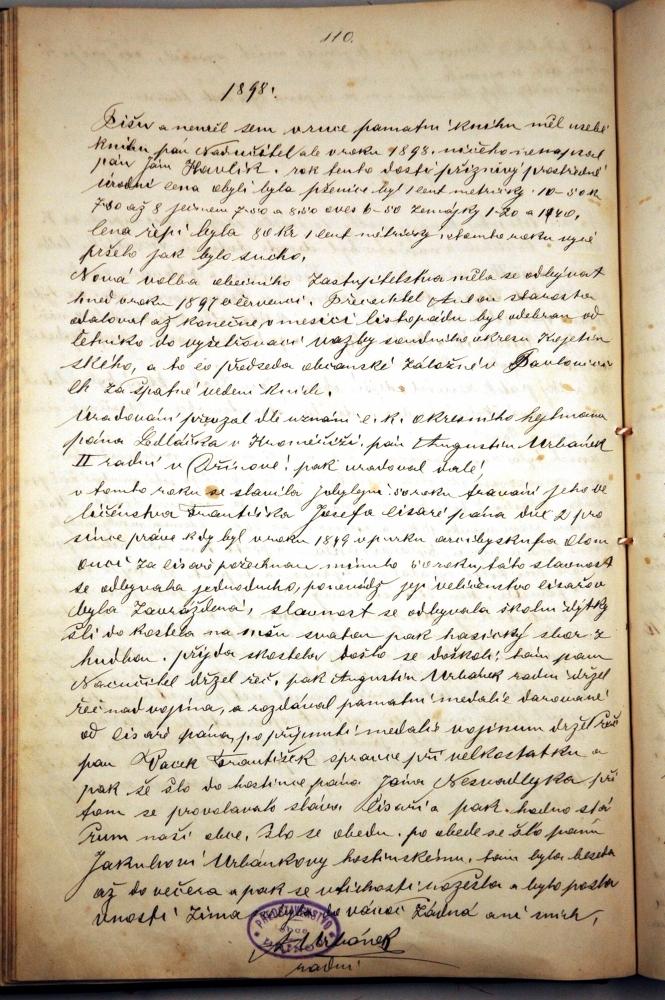 110.
1898.
Píšu a neměl sem v ruce pamatní knihu měl u sebe
knihu pan Nadučitel ale v roku 1898 ničeho nenapsal
pán Ján Havlík. rok tento dosti příznivý prostředně
úrodní cena obylí byla pšenice byl 1 cent metrický 10-50 k
7-50 až 8 ječmen 7-50 a 8-50 oves 6-50 zemáky 1-20 a 1-40.
cena řepi byla 80 kr 1 cent métrický v tomto roku
pršelo jak bylo sucho.
Nová volba obecního Zastupitelstva měla se odbývat
hned v roku 1897 v červenci. Anton starosta
odaloval až konečně v mesíci listopádu byl odebran od
k vyšetřovací vazby soudního okresu Kojetín
ského, a to co předseda občanské záložně v Pavlovicí
ch za špatné vedení knich.
Uradování převzal dle uznání c. k. okresního hejtmana
pána Sedláčka v Kroměříži pan Augustin Urbánek
II radní v pak uradoval dále
v tomto roku se slavila jubylejní 50 roku trávání jeho ve
ličenstva Františka Josefa císaře pána dne 2 pro
since práve kdy byl v roku 1849 v purku arcibyskupa olom
ouci za císaře požechnan minulo 50 roku, táto slavnost
se odbyvala jednoducho, poneváďž její veličenstvo císařov
byla Zavražděná, slavnost se odbyvala školní dýtky
šli do kostela na mšu svatou pak hasičský sbor z
hudbou. přijda s kostela došlo se do školi, tam pan
Nadučitel držel řeč, pak Augustin Urbánek radní držel
řeč nad vojína, a rozdával pamatní medalie darované
od císaře pána, po přijmutí medalie vojínum držel řeč
pan Vacek František spravce při velkostatku a
pak se šlo do hostince pána Jána Nesvadbyka při
tom se provolavalo sláva císaři a pak hodno stá
rum naší obce, šlo se obedu. po obede se šlo panu
Jakubovi Urbánkovy hostinskému, tam byla beseda
až do večera a pak se v tichosti rozešla a bylo posta
vnosti Zima do vánoc žádná ani snich,
A Urbánek
radní